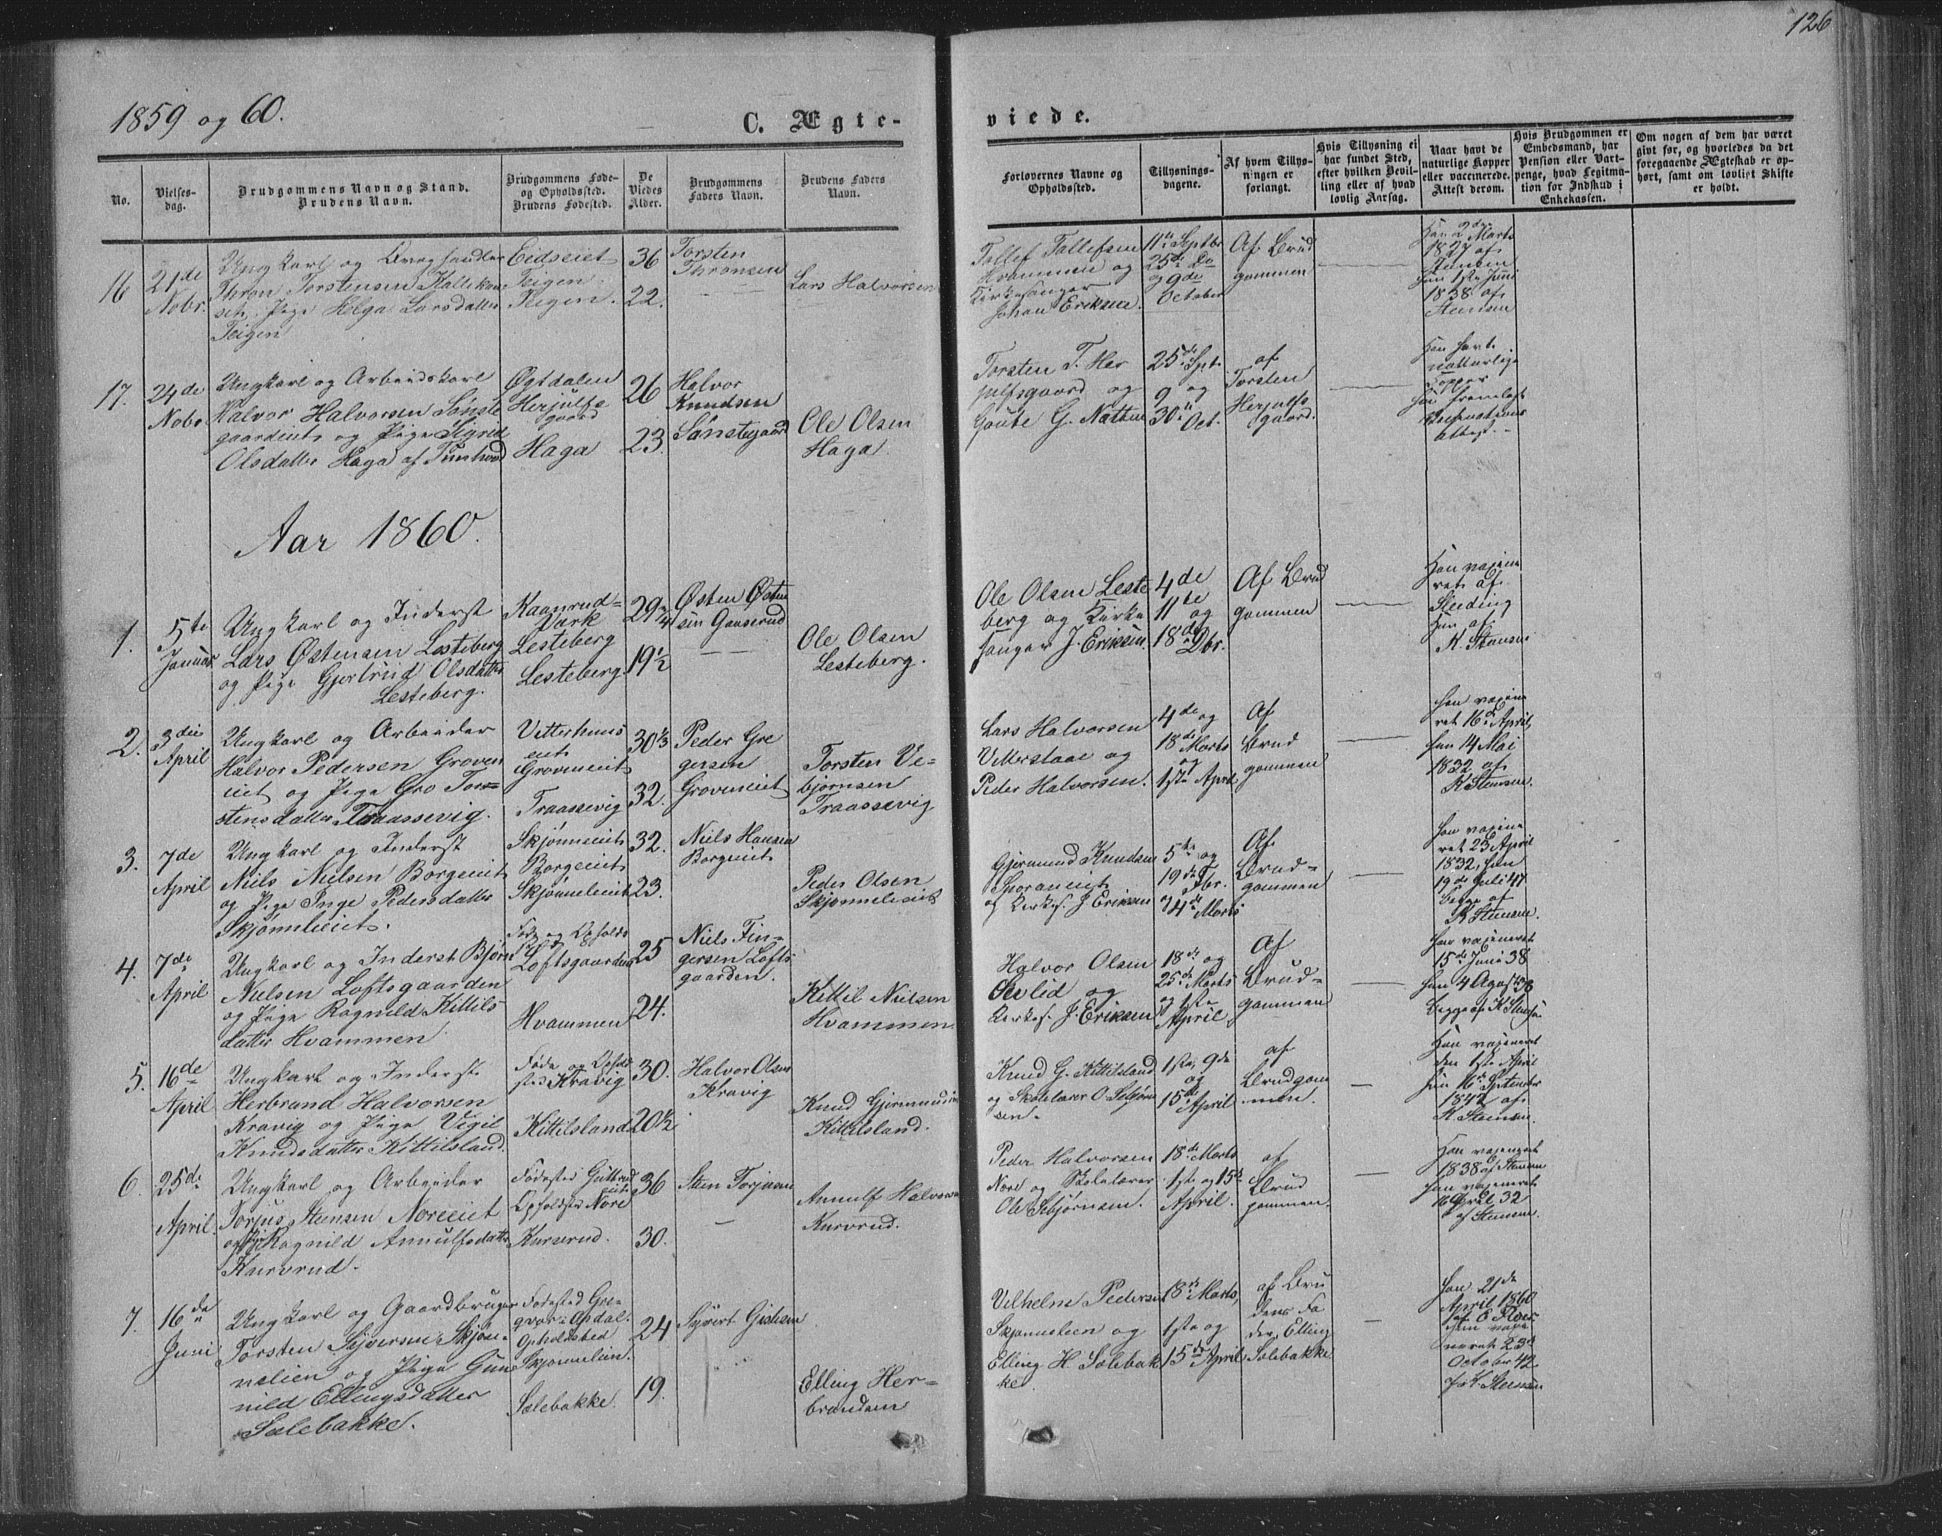 126
1859 og 60.
C. Ægte-
viede.
No.
Vielses-
dag.
Brudgommens Navn og Stand.
Brudens Navn.
Brudgommens Føde-
og Opholdssted.
Brudens Fødested.
De
Viedes
Alder.
Brudgommens
Faders Navn.
Brudens Faders
Navn.
Forlovernes Navne og
Opholdssted.
Tillysnings-
dagene.
Af hvem Tillys-
ningen er
forlangt.
Hvis Tillysning ei
har fundet Sted,
efter hvilken Bevil-
ling eller af hvad
lovlig Aarsag.
Naar havt de
naturlige Kopper
eller vaccinerede.
Attest derom.
Hvis Brudgommen er
Embedsmand, har
Pension eller Vart-
penge, hvad Legitima-
tion for Indskud i
Enkekassen.
Om nogen af dem har været
gift før, og hvorledes da det
foregaaende Ægteskab er op-
hørt, samt om lovligt Skifte
er holdt.
16
21de
Nobr.
Ungkarl og
Thron Torstensen
Pige Helga Larsdatter
Teigen
Eidseiet
Teigen.
Teigen.
36
22.
Torsten
Thronsen
Lars Halvorsen
Tollef Tollefsen
Hvammen og
Kirkesanger
Johan Eriksen.
11te Septbr
25de Do
og 9de
October
Af Brud
gommen
Han 2den Marts
1827 af
Hun 1ste Juni
1838 af
Stensen
17.
24de
Nobr
Ungkarl og Arbeidskarl
Halvor Halvorsen Sønste
gaardeiet og Pige Sigrid
Olsdatter Haga af Tunhovd
Øgtdalen
Herjulfs
gaard
Haga
26
23.
Halvor
Knudsen
Sønstegaard
Ole Olsen
Haga.
Torsten T. Her
julfsgaard og
Goute G. Natten
25de Spt.
9 og
30te Oct.
af
Torsten
Herjulfs
gaard.
Han havt
naturlige
Kopper
Attest.
Aar 1860.
1.
5te
Januar
Ungkarl og Inderst
Lars Østensen Lesteberg
og Pige Gjertrud Olsdatter
Lesteberg.
Kaanrud-
Værk
Lesteberg
Lesteberg
29¾
19½
Østen Østen
sen Gaaserud
Ole Olsen
Lesteberg.
Ole Olsen Leste
berg og Kirke
sanger J. Eriksen.
4de
11te og
18de Dbr.
Af Brud
gommen
Han vaxine
ret af
Hun af
K. Stensen
2.
3die
April
Ungkarl og Arbeider
Halvor Pedersen Groven
eiet og Pige Gro Tor-
stensdatter Traassevig.
Vetterhuus
eiet
Groveneiet
Traassevig
30⅓
32.
Peder Gre
gersen
Groveneiet
Torsten Ve-
bjørnsen
Traassevig
Lars Halvorsen
Vetterstaae og
Peder Halvorsen.
4de og
18de Marts
og
1ste April
Af
Brud
gommen
Han vaxine
ret 16de April,
hun 14 Mai
1832 af
K Stensen.
3.
7de
April
Ungkarl og Inderst
Niels Nielsen Borgeeiet
og Pige Inge Pedersdatter
Skjønneliet.
Skjønneeiet
Borgeeiet
Skjønneleiet
32.
23.
Niels Hansen
Borgeeiet
Peder Olsen
Skjønneleiet
Gjermund Knudsen
Sporaneiet
og Kirkes. J. Eriksen
5te og
19de Fbr.
og 4de Marts
Af
Brud-
gommen
Han vaxine
ret 23 April
1832, hun
19de Juli 47
begge af
K Stensen.
4.
7de
April
Ungkarl og Inderst Bjørn
Nielsen Loftsgaarden
og Pige Ragnild Kittils
datter Hvammen
Føde og Opholds
sted
Loftsgaarden
Hvammen
25
24.
Niels Fin-
gersen Lofts
gaarden.
Kittil Nielsen
Hvammen
Halvor Olsen
Ørlid og
Kirkes. J. Eriksen
18de og
25de Marts
og 1ste
April
Af
Brud-
gommen
Han vaxineret
15de Juni 38
hun 4 August 38
begge af K Stensen
5.
16de
April
Ungkarl og Inderst
Herbrand Halvorsen
Kravig og Pige Vigil
Knudsdatter Kittilsland.
Føde og Opholds
sted Kravig
Kittilsland
30.
20½
Halvor Olsen
Kravig
Knud Gjermundsen
Kittilsland.
Knud G. Kittilsland
og Skolelærer O. Sebjørn
sen.
1ste, 9de
og
15de April
af
Brudgom
men.
Han vaxineret
den 1ste April
hun 16de September
1842 af
K Stensen.
6.
25de
April.
Ungkarl og Arbeider
Torjus Stensen Noreeiet
og Pige Ragnild Annulfsdatter
Kurvrud.
Fødested Guttrud
eiet
Opholdsted Nore
Kurverud.
36
30.
Sten Torjusen
Annulf Halvorsen
Kurvrud.
Peder Halvorsen
Nore og Skolelærer
Ole Sebjørnsen.
18de Marts
1ste og 15de
April.
af
Brud
gommen.
Han vaxineret
1838 af Stensen
hun vaxineret
16 April 32
af Stensen.
7.
16de
Juni
Ungkarl og Gaardbruger
Torsten Syversen Skjøn-
nelien og Pige Gun
nild Ellingsdatter
Sælebakke.
Fødested Gre-
gvar i Opdal.
Opholdsted
Skjønnelien.
Sælebakke.
24
19.
Syvert Gislesen
Elling Her-
brandsen
Velhelm Pedersen
Skjønnelien og
Elling H. Sælebak
ke.
18de Marts,
1ste og
15de April
af Bru
dens Fa
der, Elling
Sælebakke
Han 21de
April 1860
af
hun vaxi
neret 23de
October 42
af K. Stensen